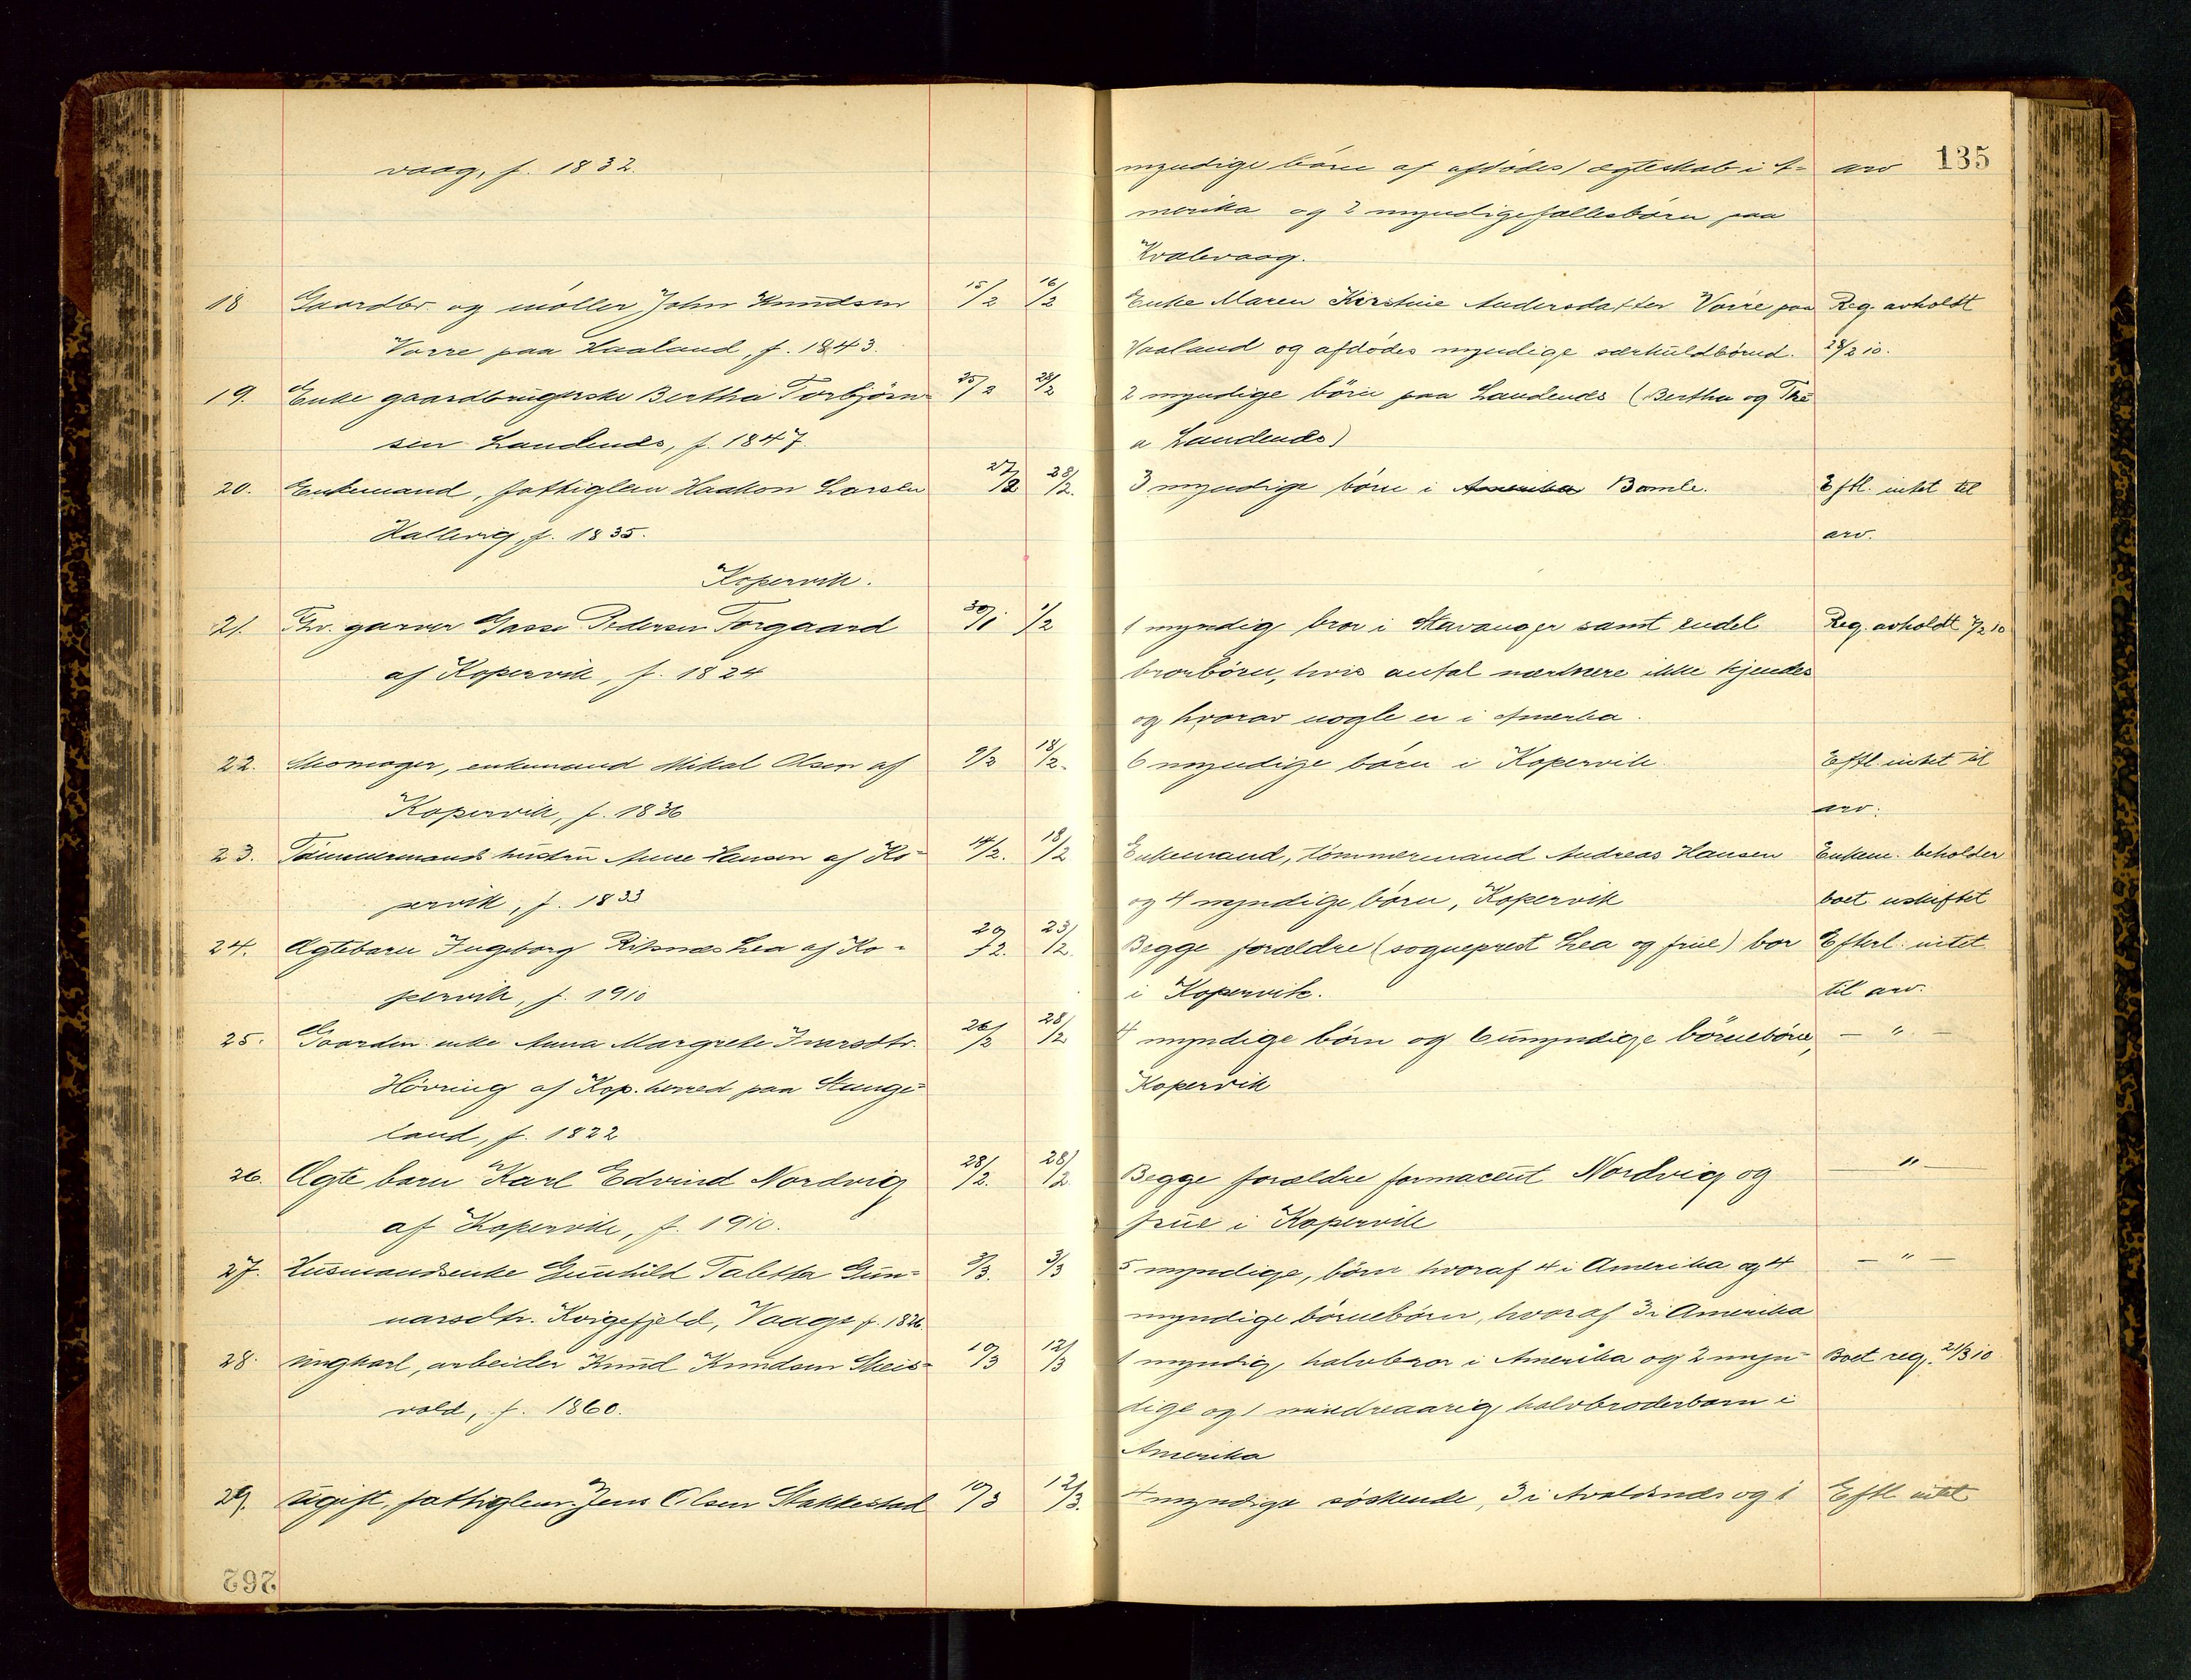 135
vaag, f. 1832.
myndige börn af afdödes 1 ægteskab i A- arv
merika og 2 myndige fællesbörn paa
Kvalevaag.
18 Gaardbr. og möller John Knudsen 15/2 16/2 Enke Maren Kirstine Andersdatter Vorre paa Reg. avholdt
Vorre paa Haaland, f. 1843. Haaland og afdödes myndige særkuldbörn. 28/2 10.
19. Enke gaardbrugerske Bertha Torbjörn- 25/2 28/2 2 myndige börn paa Landends (Bertha og The-
sen Landends, f. 1847. a Landends)
20. Enkemand, fattiglem Haakon Larsen 27/2 28/2. 3 myndige börn i Amerika Bomle. Eftl. intet til
Hallevig, f. 1835. arv.
Kopervik.
21. Fhv. garver Gasse Pedersen Torgaard 30/1 1/2 1 myndig bror i Stavanger samt endel Reg. avholdt 7/2 10
af Kopervik, f. 1824 brorbörn, hvis antal nærmere ikke kjendes
og hvorav nogle er i Amerka.
22. Skomager, enkemand Mikal Olsen af 9/2 18/2. 6 myndige börn i Kopervik Eftl. intet til
Kopervik, f. 1836 arv.
23. Tömmermands hustru Anne Hansen af Ko- 14/2. 18/2 Enkemand, tömmermand Andreas Hansen Enkem. beholder
pervik, f. 1833 og 4 myndige börn, Kopervik boet uskiftet
24. Ægtebarn Ingeborg Riksnæs Lea af Ko- 20/2. 23/2. Begge forældre (sogneprest Lea og frue) bor Efterl. intet
pervik, f. 1910 i Kopervik. til arv.
25. Gaardm. enke Anna Margrete Ivarsdtr. 26/2 28/2 4 myndige börn og 6 umyndige börnebörn, — " —
Hövring af Kop. herred paa Stange- Kopervik
land, f. 1822
26. Ægte barn Karl Edvind Nordvig 28/2. 28/2 Begge forældre farmaceut Nordvig og — " —
af Kopervik, f. 1910. frue i Kopervik
27. Husmandsenke Gunhild Taletta Gun- 3/3. 3/3 5 myndige, börn hvoraf 4 i Amerika og 4 — " —
narsdtr. Kvigefjeld, Vaage f. 1826. myndige börnebörn, hvoraf 3 i Amerika
28. ungkarl, arbeider Knud Knudsen Skeis- 10/3 12/3 1 myndig, halvbror i Amerika og 2 myn- Boet reg. 21/3 10
vold, f. 1860. dige og 1 mindreaarig halvbroderbarn i
Amerika
29. ugift, fattiglem. Jens Olsen Stakkestad 10/3 12/3. 4 myndige söskende, 3 i Avaldsnes og 1 Eftl intet
262